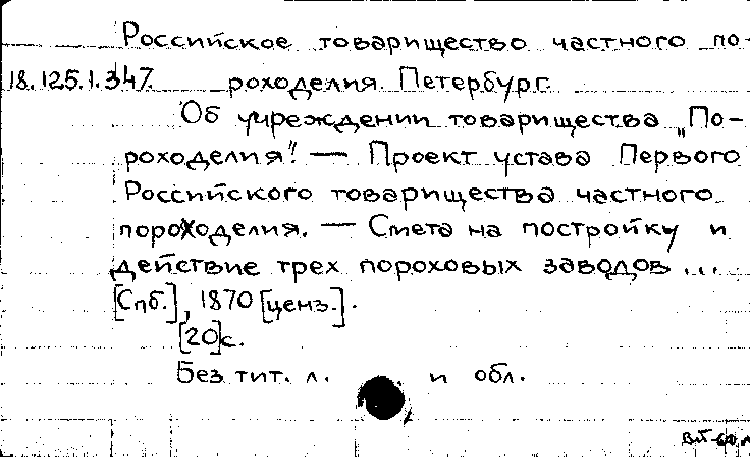 Российское товарищество частного по-
18.125.1.347. роходелия. Петербург.
Об учреждении товарищества „По-
роходелия". — Проект устава Первого
Российского товарищества частного
пороходелия. — Смета на постройку и
действие трех пороховых заводов ...
[Спб.], 1870 [ценз.].
[20]с.
Без тит. л. и обл.